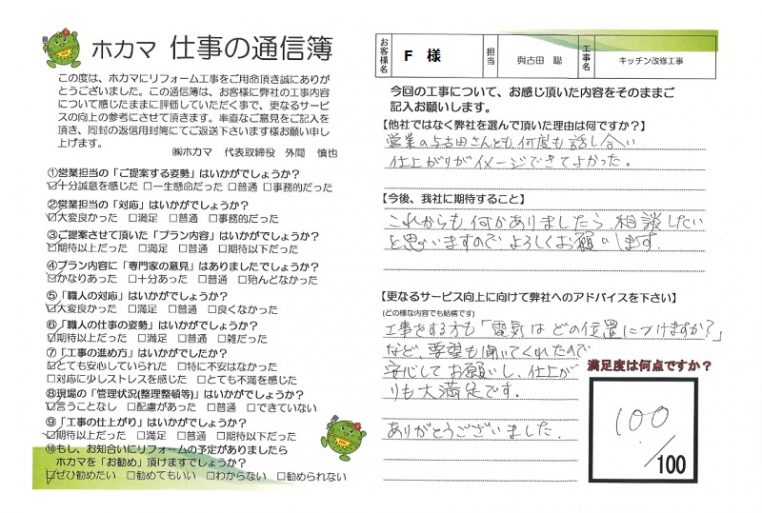 ホカマ 仕事の通信簿
この度は、ホカマにリフォーム工事をご用命頂き誠にありが
とうございました。この通信簿は、お客様に弊社の工事内容
について感じたままに評価していただく事で、更なるサービ
スの向上の参考にさせて頂きます。率直なご意見をご記入を
頂き、同封の返信用封筒にてご返送下さいます様お願い申し
上げます。
㈱ホカマ 代表取締役 外間 慎也
①営業担当の「ご提案する姿勢」はいかがでしょうか?
☑十分誠意を感じた □一生懸命だった □普通 □事務的だった
②営業担当の「対応」はいかがでしょうか?
☑大変良かった □満足 □普通 □事務的だった
③ご提案させて頂いた「プラン内容」はいかがでしょうか?
☑期待以上だった □満足 □普通 □期待以下だった
④プラン内容に「専門家の意見」はありましたでしょうか?
☑かなりあった □十分あった □普通 □殆んどなかった
⑤「職人の対応」はいかがでしょうか?
☑大変良かった □満足 □普通 □良くなかった
⑥「職人の仕事の姿勢」はいかがでしょうか?
☑期待以上だった □満足 □普通 □雑だった
⑦「工事の進め方」はいかがでしたか?
☑とても安心していられた □特に不安はなかった
□対応に少しストレスを感じた □とても不満を感じた
⑧現場の「管理状況(整理整頓等)」はいかがでしょうか?
☑言うことなし □配慮があった □普通 □できていない
⑨「工事の仕上がり」はいかがでしょうか?
☑期待以上だった □満足 □普通 □期待以下だった
⑩もし、お知合いにリフォームの予定がありましたら
ホカマを「お勧め」頂けますでしょうか?
☑ぜひ勧めたい □勧めてもいい □わからない □勧められない
お客様名 F 様 担当 與古田 聡 工事名 キッチン改修工事
今回の工事について、お感じ頂いた内容をそのままご
記入お願いします。
【他社ではなく弊社を選んで頂いた理由は何ですか?】
営業の与古田さんとも何度も話し合い
仕上がりがイメージできてよかった。
【今後、我社に期待すること】
これからも何かありましたら相談したい
と思いますのでよろしくお願いします.
【更なるサービス向上に向けて弊社へのアドバイスを下さい】
(どの様な内容でも結構です)
工事をする方も「電気はどの位置につけますか?」
など、要望も聞いてくれたので
安心してお願いし、仕上が
りも大満足です。
ありがとうございました.
満足度は何点ですか?
100
/100